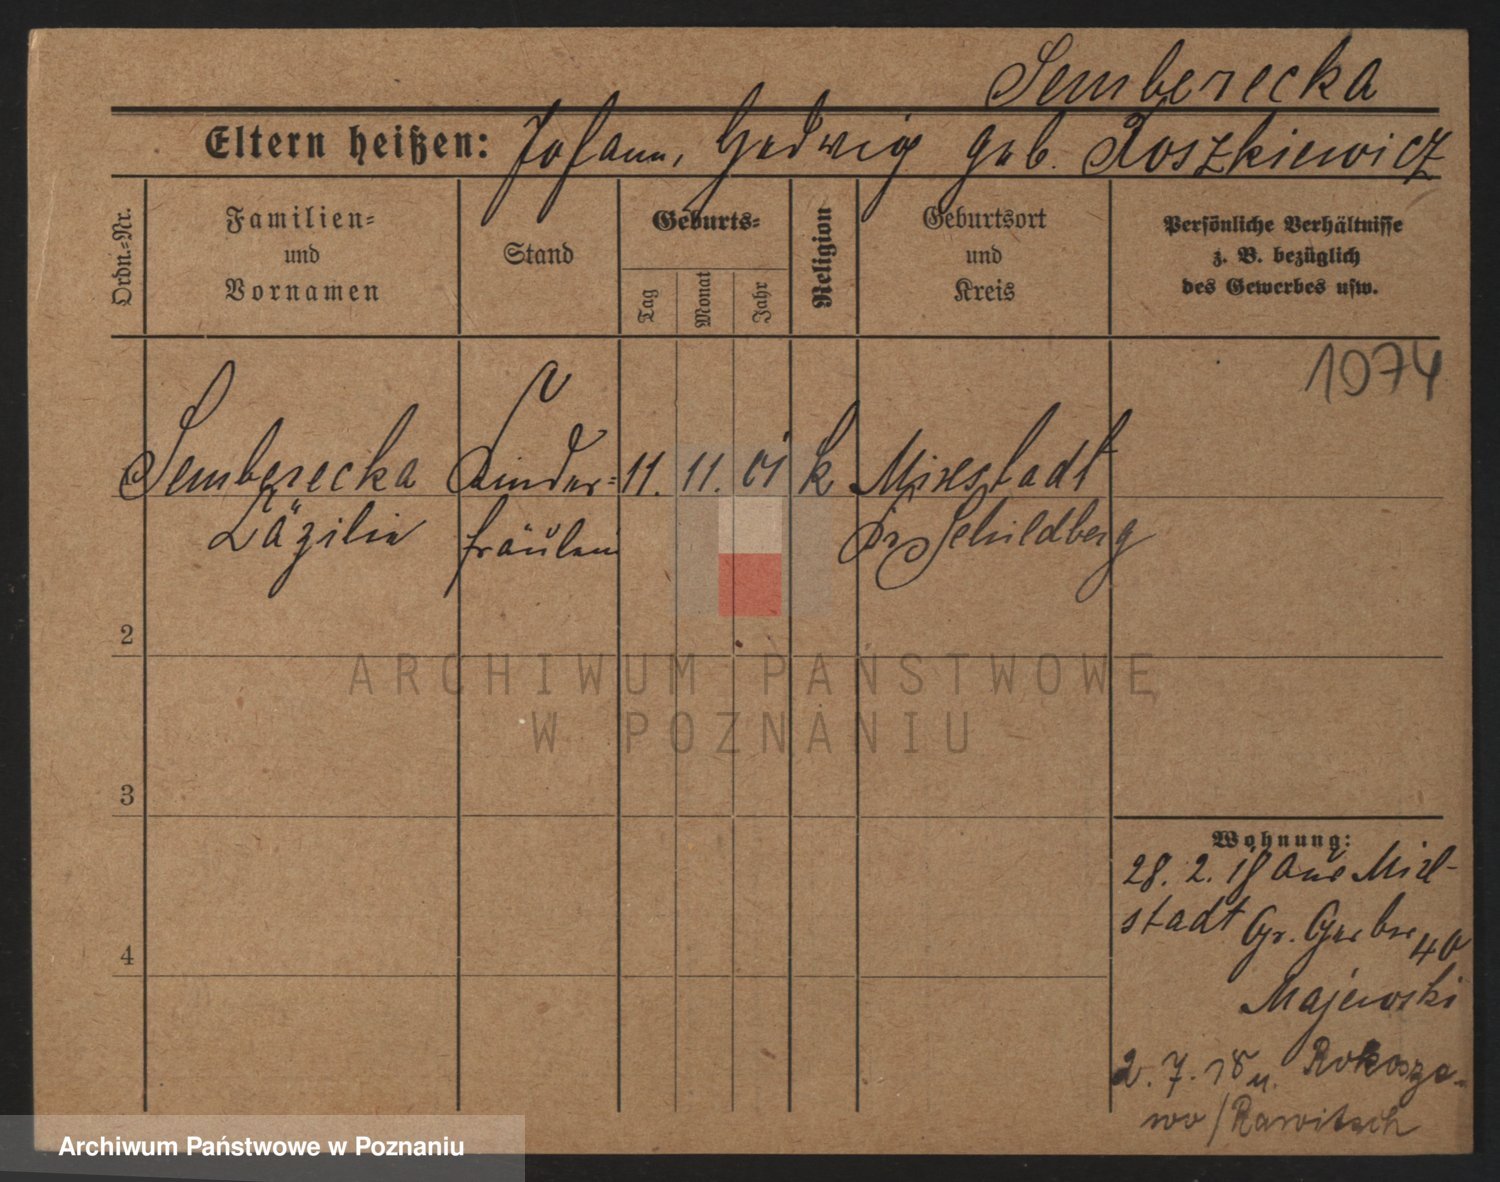 Semberecka
Eltern heißen: Johann, Hedwig geb. Roszkiewicz
Ordn.-Nr.
Familien-
und
Vornamen
Stand
Geburts-
Tag
Monat
Jahr
Religion
Geburtsort
und
Kreis
Persönliche Verhältnisse
z. B. bezüglich
des Gewerbes usw.
1074
Semberecka Kinder- 11. 11. 01 k Mixstadt
Zäzilie fräulein Kr Schildberg
2
3
4
Wohnung:
28. 2. 18 aus Mixt-
stadt Gr. Gerber 40
Majewski
2. 7. 18 n. Rokosze-
wo / Rawitsch
ARCHIWUM PAŃSTWOWE
W POZNANIU
Archiwum Państwowe w Poznaniu